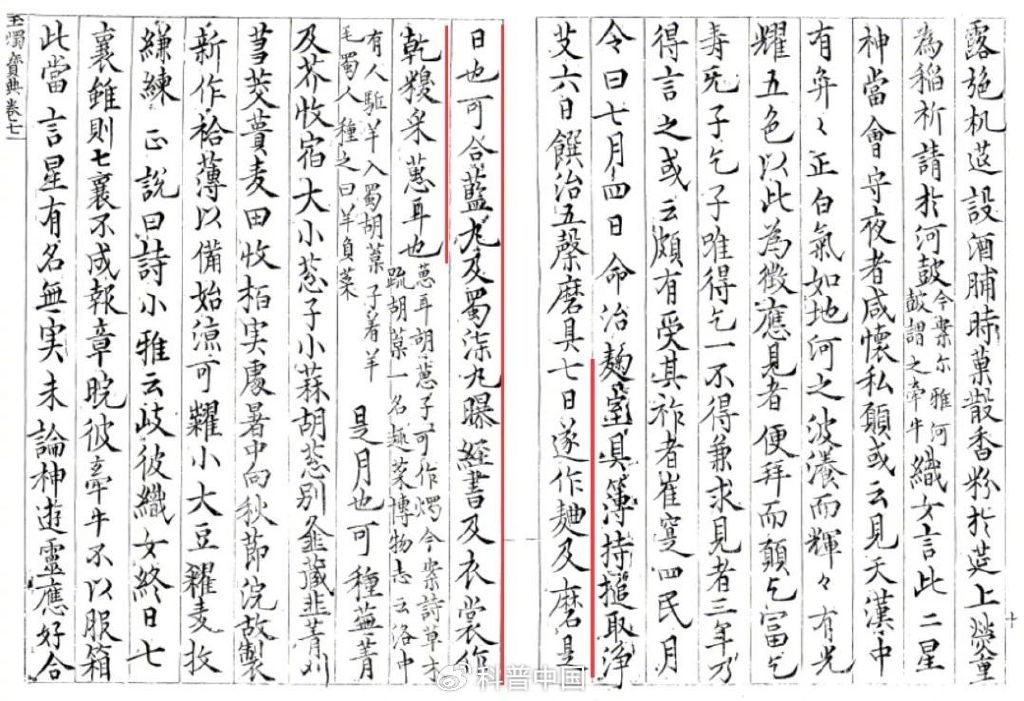 露䒳机莚設酒脯時菓散香粉扵莚上熒重
為稲祈請扵河鼓今案尔雅河鼓謂之牽牛織女言此二星
神當會守夜者咸懷私願或云見天漢中
有弈々正白氣如地河之波瀁而輝々有光
耀五色以此為徴應見者便拜而願乞冨乞
寿旡子乞子唯得乞一不得兼求見者三年乃
得言之或云頗有受其祚者崔寔四民月
令曰七月四日 命治麹室具簿持搥取浄
艾六日饌治五糓磨具七日遂作麺及磨是
日也可合藍丸及蜀漆丸曝經書及衣裳作
乾糗采葸耳也葸耳胡葸子可作燭今案詩草木
䟽胡菓一名趣菜博物志云洛中
有人駈羊入蜀胡菓子着羊
毛蜀人種之曰羊負菜 是月也可種蕪菁
及芥收宿大小葱子小蒜胡葱别韮藏韭菁刈
茭蕢麦田收柏実處暑中向秋節浣故製
新作袷薄以備始凉可糶小大豆糴麦收
縑練 正說曰詩小雅云歧彼織女終日七
襄雖則七襄不成報章晥彼牽牛不以服箱
此當言星有名無実未論神逰靈應好合
玉燭寶典卷七
十
科普中国